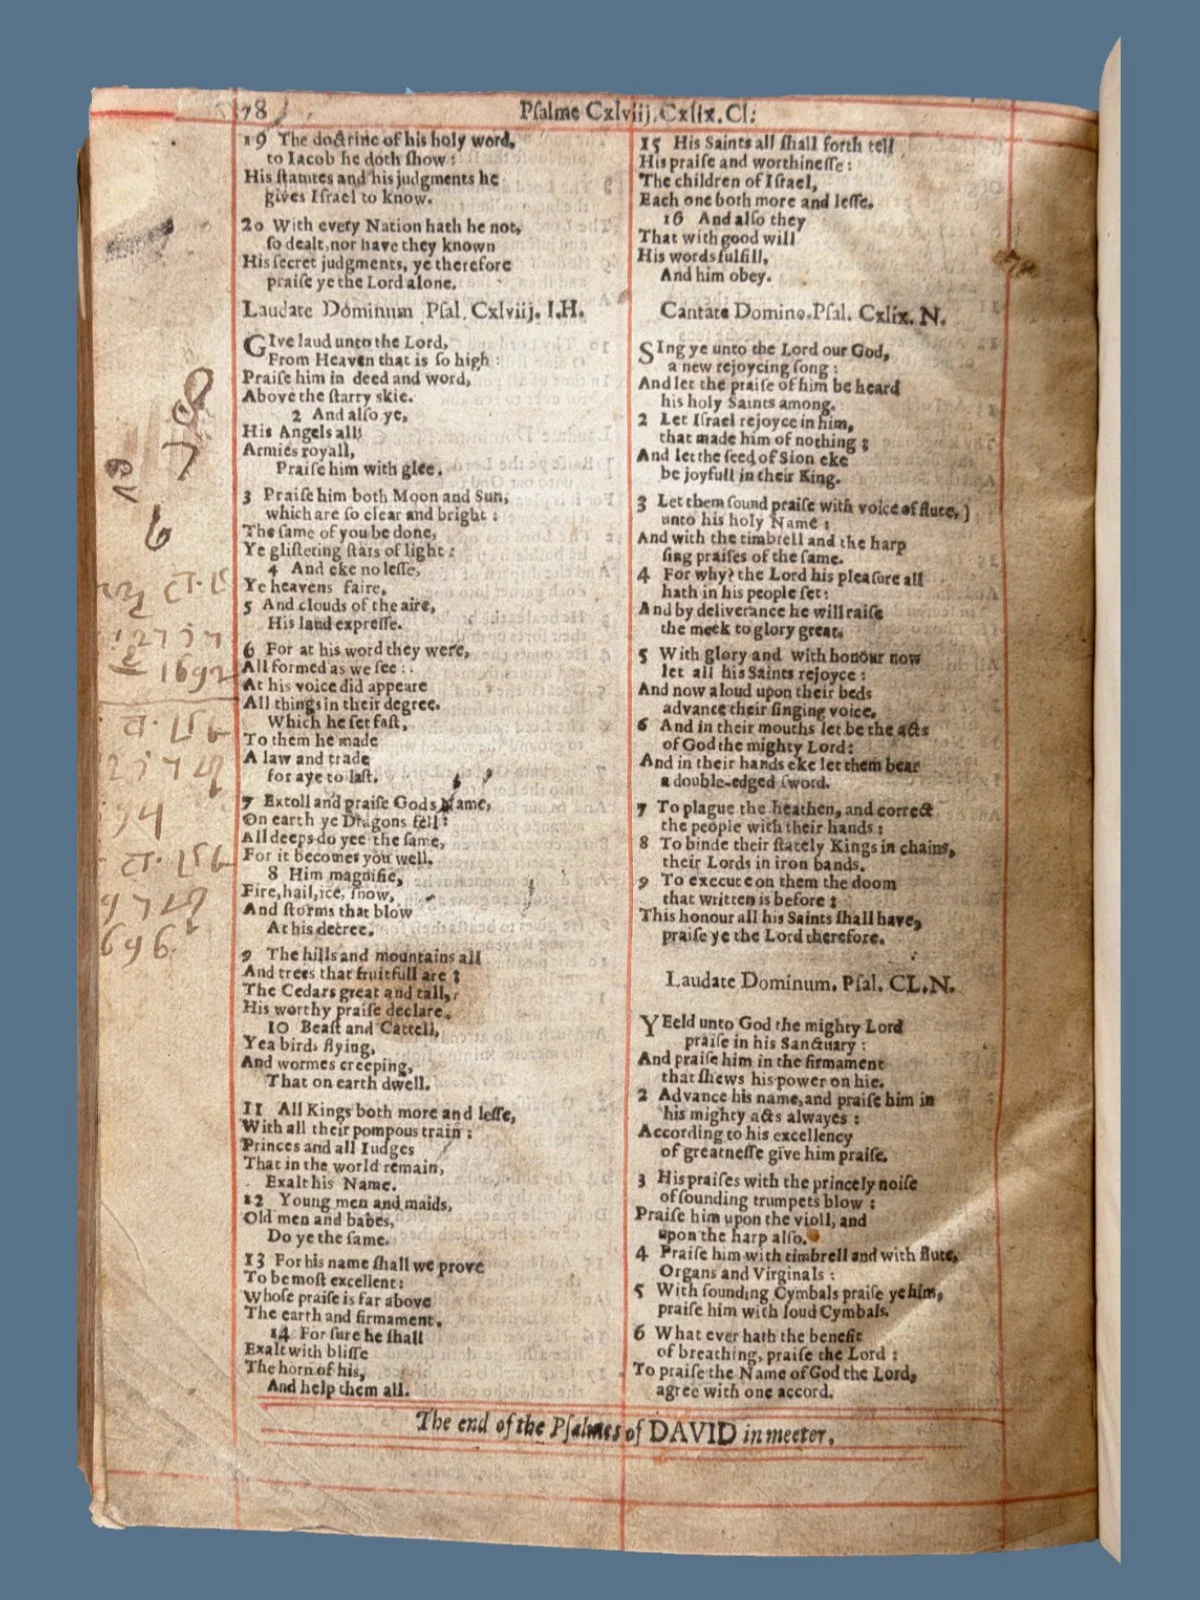 78
Psalme Cxlviij. Cxlix. Cl:
19 The doctrine of his holy word,
to Iacob he doth shew:
His statutes and his judgments he
gives Israel to know.
20 With every Nation hath he not,
so dealt, nor have they known
His secret judgments, ye therefore
praise ye the Lord alone.
Laudate Dominum Psal. Cxlviij. I.H.
GIve laud unto the Lord,
From Heaven that is so high:
Praise him in deed and word,
Above the starry skie.
2 And also ye,
His Angels all,
Armies royall,
Praise him with glee.
3 Praise him both Moon and Sun,
which are so clear and bright:
The same of you be done,
Ye glistering stars of light:
4 And eke no lesse,
Ye heavens faire,
5 And clouds of the aire,
His laud expresse.
6 For at his word they were,
All formed as we see:
At his voice did appeare
All things in their degree.
Which he set fast,
To them he made
A law and trade
for aye to last.
7 Extoll and praise Gods Name,
On earth ye Dragons fell:
All deeps do yee the same,
For it becomes you well.
8 Him magnifie,
Fire, hail, ice, snow,
And storms that blow
At his decree.
9 The hills and mountains all
And trees that fruitfull are:
The Cedars great and tall,
His worthy praise declare.
10 Beast and Cattell,
Yea birds flying,
And wormes creeping,
That on earth dwell.
11 All Kings both more and lesse,
With all their pompous train:
Princes and all Iudges
That in the world remain,
Exalt his Name.
12 Young men and maids,
Old men and babes,
Do ye the same.
13 For his name shall we prove
To be most excellent:
Whose praise is far above
The earth and firmament.
14 For sure he shall
Exalt with blisse
The horn of his,
And help them all.
15 His Saints all shall forth tell
His praise and worthinesse:
The children of Israel,
Each one both more and lesse.
16 And also they
That with good will
His words fulfill,
And him obey.
Cantate Domino. Psal. Cxlix. N.
SIng ye unto the Lord our God,
a new rejoycing song:
And let the praise of him be heard
his holy Saints among.
2 Let Israel rejoyce in him,
that made him of nothing:
And let the seed of Sion eke
be joyfull in their King.
3 Let them sound praise with voice of flute,]
unto his holy Name:
And with the timbrell and the harp
sing praises of the same.
4 For why? the Lord his pleasure all
hath in his people set:
And by deliverance he will raise
the meek to glory great.
5 With glory and with honour now
let all his Saints rejoyce:
And now aloud upon their beds
advance their singing voice.
6 And in their mouths let be the acts
of God the mighty Lord:
And in their hands eke let them bear
a double-edged sword.
7 To plague the heathen, and correct
the people with their hands:
8 To binde their stately Kings in chains,
their Lords in iron bands.
9 To execute on them the doom
that written is before:
This honour all his Saints shall have,
praise ye the Lord therefore.
Laudate Dominum. Psal. CL. N.
YEeld unto God the mighty Lord
praise in his Sanctuary:
And praise him in the firmament
that shews his power on hie.
2 Advance his name, and praise him in
his mighty acts alwayes:
According to his excellency
of greatnesse give him praise.
3 His praises with the princely noise
of sounding trumpets blow:
Praise him upon the violl, and
upon the harp also.
4 Praise him with timbrell and with flute,
Organs and Virginals:
5 With sounding Cymbals praise ye him,
praise him with loud Cymbals.
6 What ever hath the benefit
of breathing, praise the Lord:
To praise the Name of God the Lord,
agree with one accord.
The end of the Psalmes of DAVID in meeter.
6
1692
696